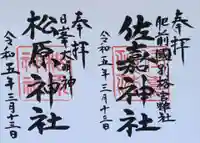 奉拝
肥前國別格縣社
佐嘉神社
令和五年三月十三日
奉拝
日峯大明神
松原神社
令和五年三月十三日